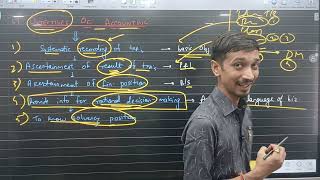 OBJECTIVES OF ACCOUNTING
1) Systematic recording of tran. → basic obj
2) Ascertainment of result of trans → P&L
3) Ascertainment of fin position → B/S
4) info for rational decision making → language of biz
5) To know solvency position
DM